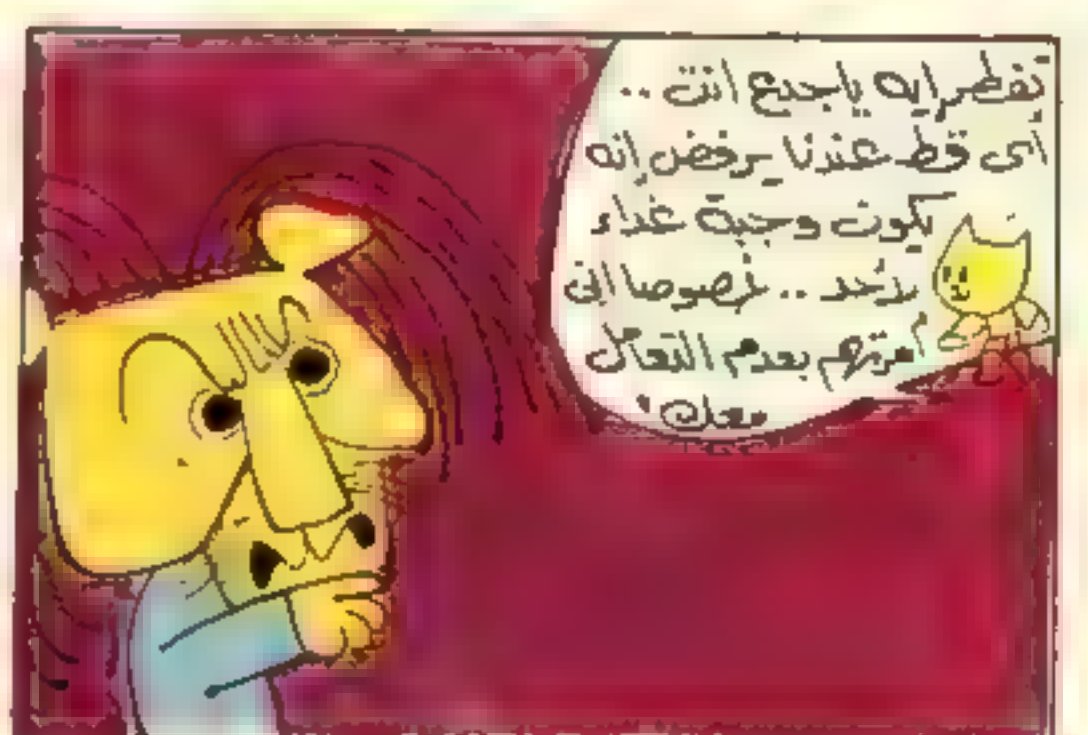 تفطر ايه ياجدع انت ..
اى قط عندنا يرفض إنه
يكون وجبة غداء
لأحد .. خصوصا انى
أمرتهم بعدم التعامل
معك